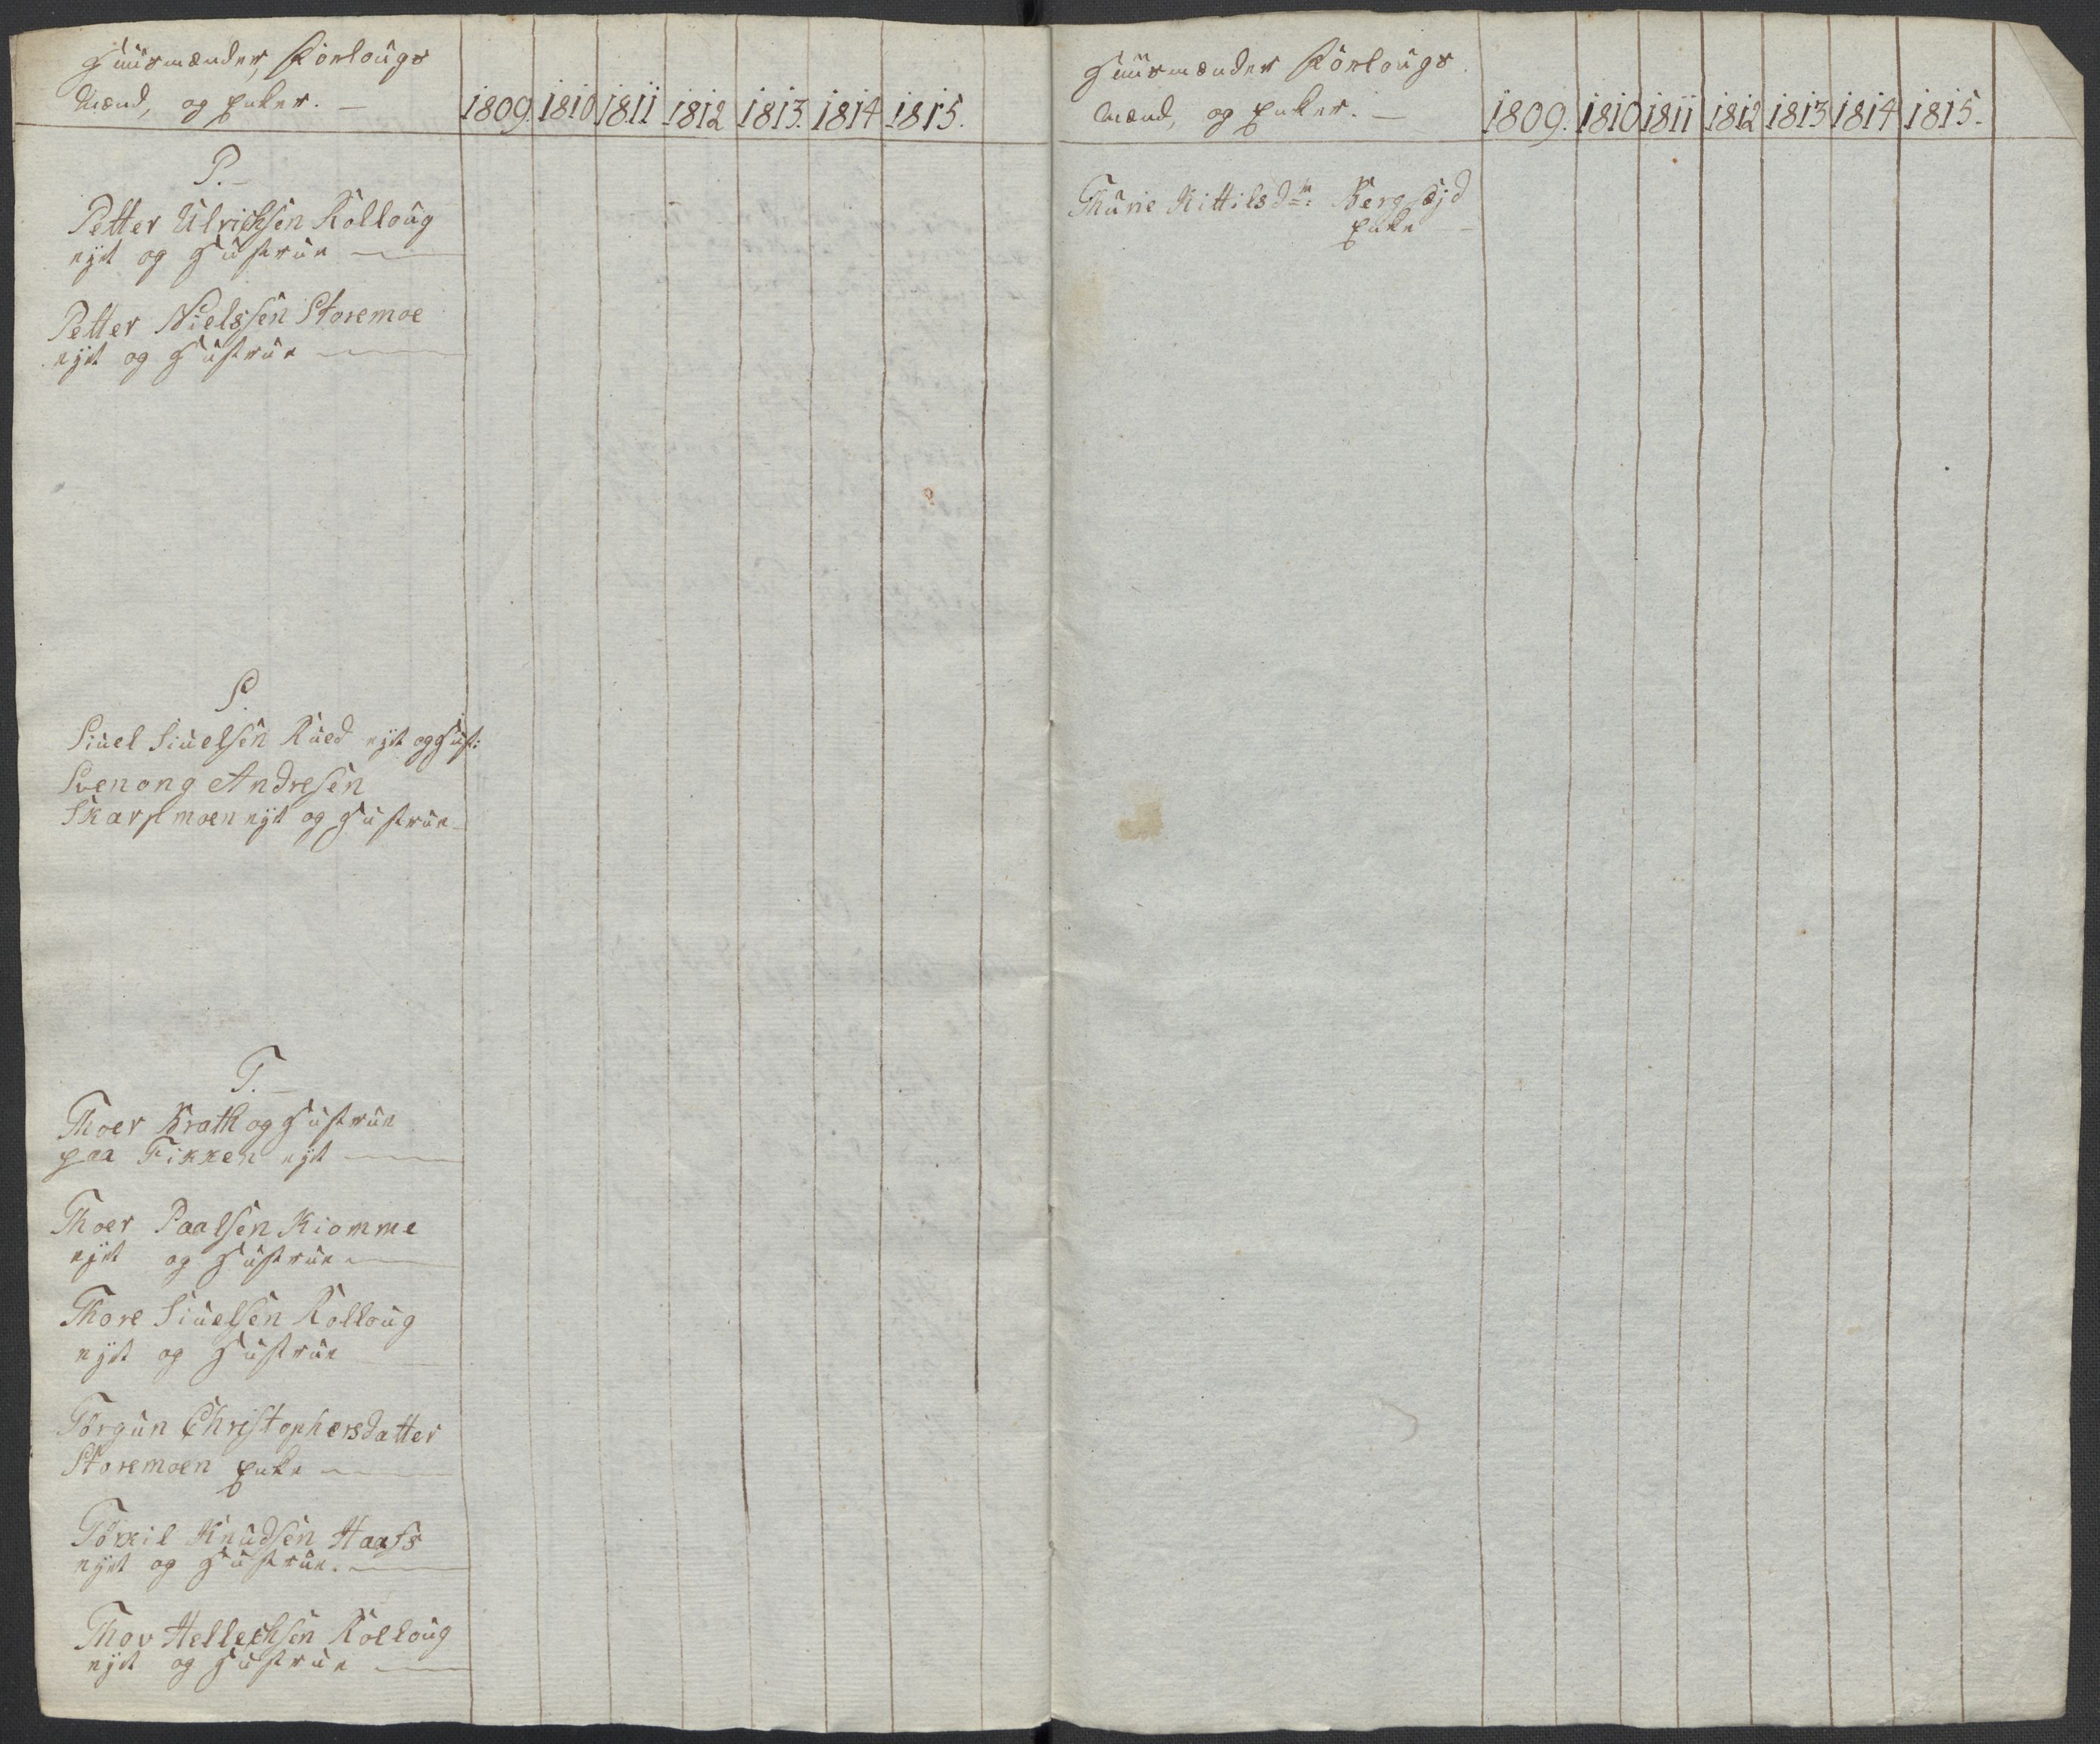 Huusmænder, Førlougs
Mænd, og Enker. —
1809. 1810 1811 1812 1813. 1814 1815.
P. —
Petter Ulrichsen Kolloug
nyt og Hustrue —
Petter Nielssen Storemoe
nyt og Hustrue —
S.
Siuel Siuelsen Rued nyt og Hust:
Svenong Andresen
Skarpmoen nyt og Hustrue —
T. —
Thoer Brath og Hustrue
paa Fikken nyt —
Thoer Paalsen Kiomme
nyt og Hustrue —
Thore Siuelsen Kolloug
nyt og Hustrue —
Torgun Christophersdatter
Storemoen Enke —
Torkil Knudsen Haafs
nyt og Hustrue. —
Thov Hellechsen Kolloug
nyt og Hustrue —
Huusmænder Førlougs
Mænd, og Enker. —
1809. 1810 1811 1812 1813 1814 1815.
Thurie Kittilsdtr: Bergsejd
Enke —